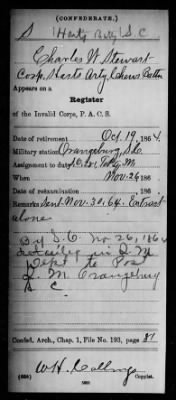 (CONFEDERATE.)
S Harts Batty S.C.
Charles W. Stewart
Corp. Harts Arty
Appears on a
Register
of the Invalid Corps, P. A. C. S.
Date of retirement Oct. 19, 1864.
Military station Orangeburg, S.C.
Assignment to duty
When Nov. 26 1864
Date of reexamination 186
Remarks: Sent Nov. 30. 64.
alone
By S.O. No 26, 1864
detailed in Q M
Dept to
Q. M. Orangeburg
S C
Confed. Arch., Chap. 1, File No. 193, page 87
W.H. Collings
Copyist.